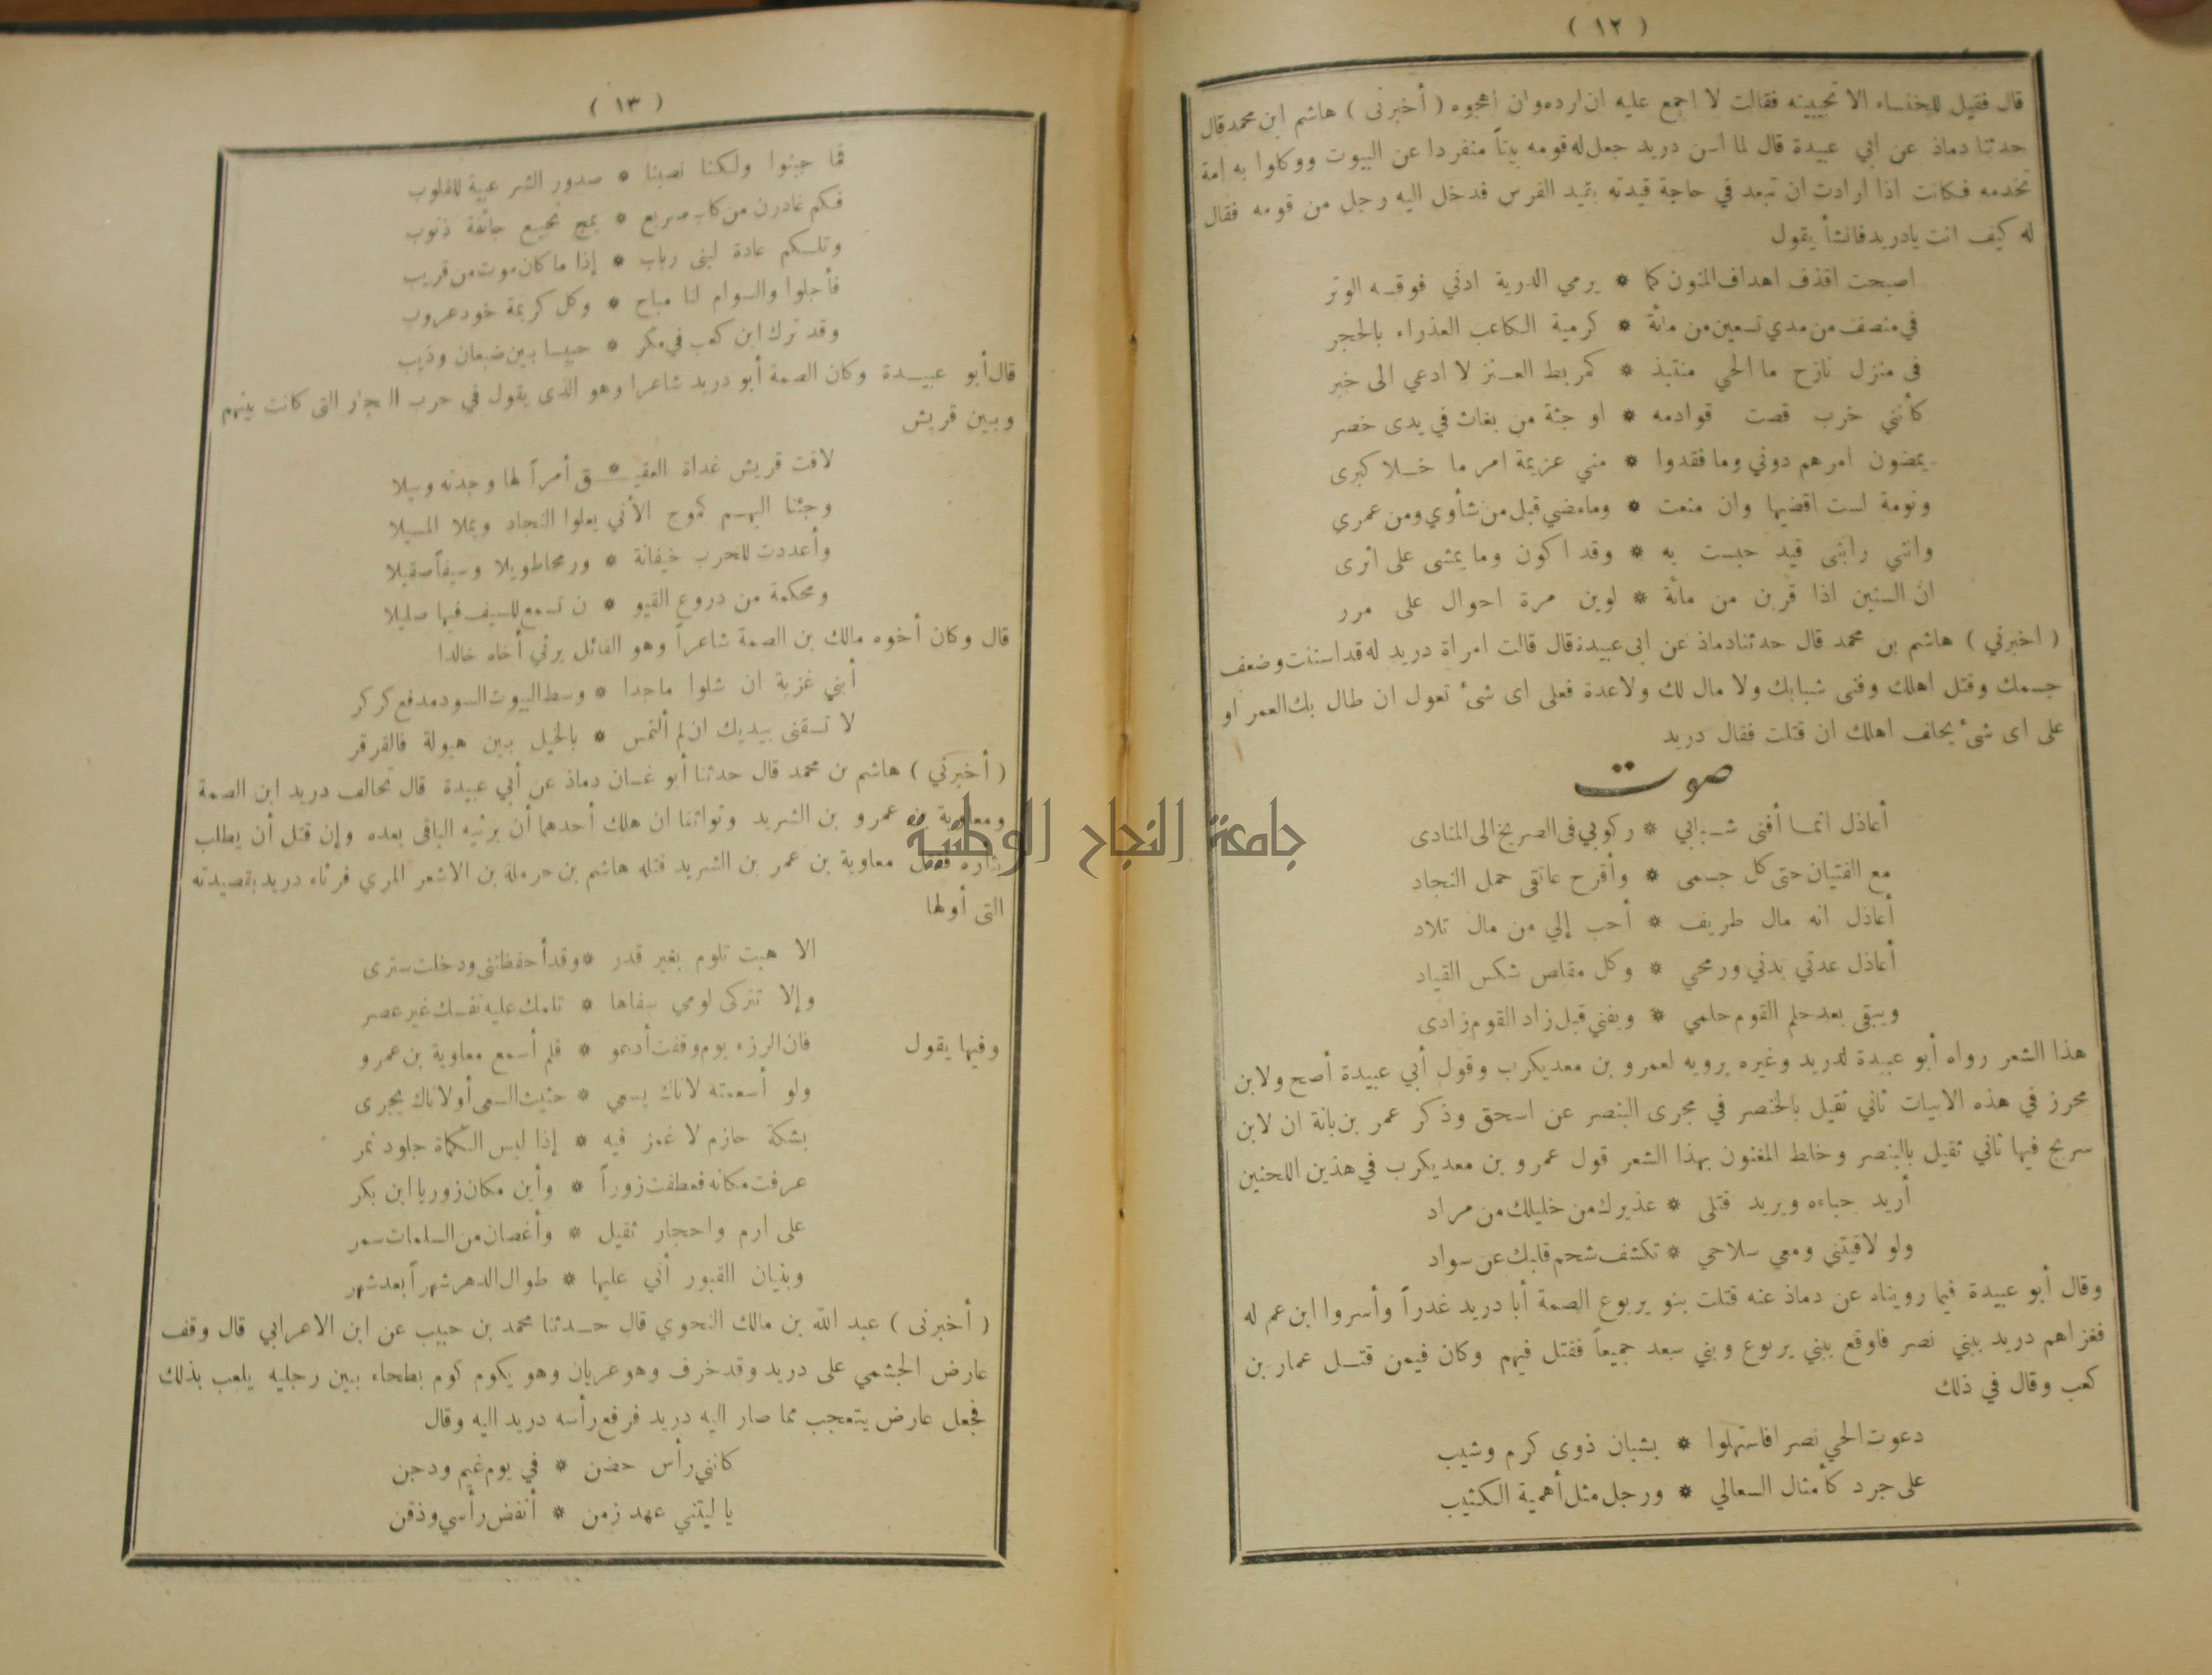 ( ١٢ )
قال فقيل للخنساء الا تجيبينه فقالت لا اجمع عليه ان ارده وان اهجوه ( أخبرنى ) هاشم ابن محمد قال
حدثنا دماذ عن ابي عبيدة قال لما اسن دريد جعل له قومه بيتاً منفردا عن البيوت ووكلوا به امة
تخدمه فكانت اذا ارادت ان تبعد في حاجة قيدته بقيد الفرس فدخل اليه رجل من قومه فقال
له كيف انت يادريد فانشأ يقول
اصبحت اقذف اهداف المنون كما * يرمي الدرية ادني فوقه الوتر
في منصف من مدي تسعين من مائة * كرمية الكاعب العذراء بالحجر
فى منزل نازح ما الحي منتبذ * كمربط العنز لا ادعي الى خبر
كأنني خرب قصت قوادمه * او جثة من بغاث في يدى خصر
يمضون امرهم دوني وما فقدوا * مني عزيمة امر ما خلا كبرى
ونومة لست اقضيها وان منعت * وما مضي قبل من شأوي ومن عمري
وانني رابنى قيد حبست به * وقد اكون وما يمشى على اثرى
ان السنين اذا قربن من مائة * لوين مرة احوال على مرر
( اخبرني ) هاشم بن محمد قال حدثنا دماذ عن ابى عبيدة قال قالت امراة دريد له قد اسننت وضعف
جسمك وقتل اهلك وفنى شبابك ولا مال لك ولا عدة فعلى اى شئ تعول ان طال بك العمر او
على اى شئ يخلف اهلك ان قتلت فقال دريد
صوت
أعاذل انما أفنى شبابي * ركوبي فى الصريخ الى المنادى
مع الفتيان حتى كل جسمى * وأقرح عاتقى حمل النجاد
أعاذل انه مال طريف * أحب إلي من مال تلاد
أعاذل عدتي بدني ورمحي * وكل مقلص شكس القياد
ويبقى بعد حلم القوم حلمي * ويفني قبل زاد القوم زادى
هذا الشعر رواه أبو عبيدة لدريد وغيره يرويه لعمرو بن معديكرب وقول أبي عبيدة أصح ولابن
محرز في هذه الابيات ثاني ثقيل بالخنصر في مجرى البنصر عن اسحق وذكر عمر بن بانة ان لابن
سريج فيها ثاني ثقيل بالبنصر وخلط المغنون بهذا الشعر قول عمرو بن معديكرب في هذين اللحنين
أريد حباءه ويريد قتلى * عذيرك من خليلك من مراد
ولو لاقيتني ومعي سلاحي * تكشف شحم قلبك عن سواد
وقال أبو عبيدة فيما رويناه عن دماذ عنه قتلت بنو يربوع الصمة أبا دريد غدراً وأسروا ابن عم له
فغزاهم دريد ببني نصر فاوقع ببني يربوع وبني سعد جميعاً فقتل فيهم وكان فيمن قتل عمار بن
كعب وقال في ذلك
دعوت الحي نصرا فاستهلوا * بشبان ذوى كرم وشيب
على جرد كأمثال السعالي * ورجل مثل أهمية الكثيب
( ١٣ )
فما جبنوا ولكنا نصبنا * صدور الشرعبية للقلوب
فكم غادرن من كاب صريع * يمج نجيع جائفة ذنوب
وتلكم عادة لبنى رباب * إذا ما كان موت من قريب
فأجلوا والسوام لنا مباح * وكل كريمة خود عروب
وقد ترك ابن كعب في مكر * حبيسا بين ضبعان وذيب
قال أبو عبيدة وكان الصمة أبو دريد شاعرا وهو الذى يقول في حرب الفجار التى كانت بينهم
وبين قريش
لاقت قريش غداة العقيـ * ـق أمراً لها وجدته وبيلا
وجئنا اليهم كموج الأتي يعلوا النجاد ويملا المسيلا
وأعددت للحرب خيفانة * ورمحا طويلا وسيفاً صقيلا
ومحكمة من دروع القيو * ن تسمع للسيف فيها صليلا
قال وكان أخوه مالك بن الصمة شاعراً وهو القائل يرثي أخاه خالدا
أبني غزية ان شلوا ماجدا * وسط البيوت السود مدفع كركر
لا تسقنى بيديك ان لم ألتمس * بالخيل بين هبولة فالقرقر
( أخبرني ) هاشم بن محمد قال حدثنا أبو غسان دماذ عن أبي عبيدة قال تحالف دريد ابن الصمة
ومعاوية بن عمرو بن الشريد وتواثقا ان هلك أحدهما أن يرثيه الباقى بعده وإن قتل أن يطلب
بثاره فقتل معاوية بن عمر بن الشريد قتله هاشم بن حرملة بن الاشعر المري فرثاه دريد بقصيدته
التى أولها
الا هبت تلوم بغير قدر * وقد أحفظتنى ودخلت سترى
وإلا تتركى لومي سفاها * تلمك عليه نفسك غير عصر
وفيها يقول فان الرزء يوم وقفت أدعو * فلم أسمع معاوية بن عمرو
ولو أسمعته لاتاك يسعي * حثيث السعى أو لاتاك يجرى
بشكة حازم لا غمز فيه * إذا لبس الكماة جلود نمر
عرفت مكانه فعطفت زوراً * وأين مكان زور يا ابن بكر
على ارم واحجار ثقيل * وأغصان من السلمات سمر
وبنيان القبور أتي عليها * طوال الدهر شهراً بعد شهر
( أخبرنى ) عبد الله بن مالك النحوي قال حدثنا محمد بن حبيب عن ابن الاعرابي قال وقف
عارض الجشمي على دريد وقد خرف وهو عريان وهو يكوم كوم بطحاء بين رجليه يلعب بذلك
فجعل عارض يتعجب مما صار اليه دريد فرفع رأسه دريد اليه وقال
كانني رأس حضن * في يوم غيم ودجن
يا ليتني عهد زمن * أنفض رأسي وذقن
جامعة النجاح الوطنية